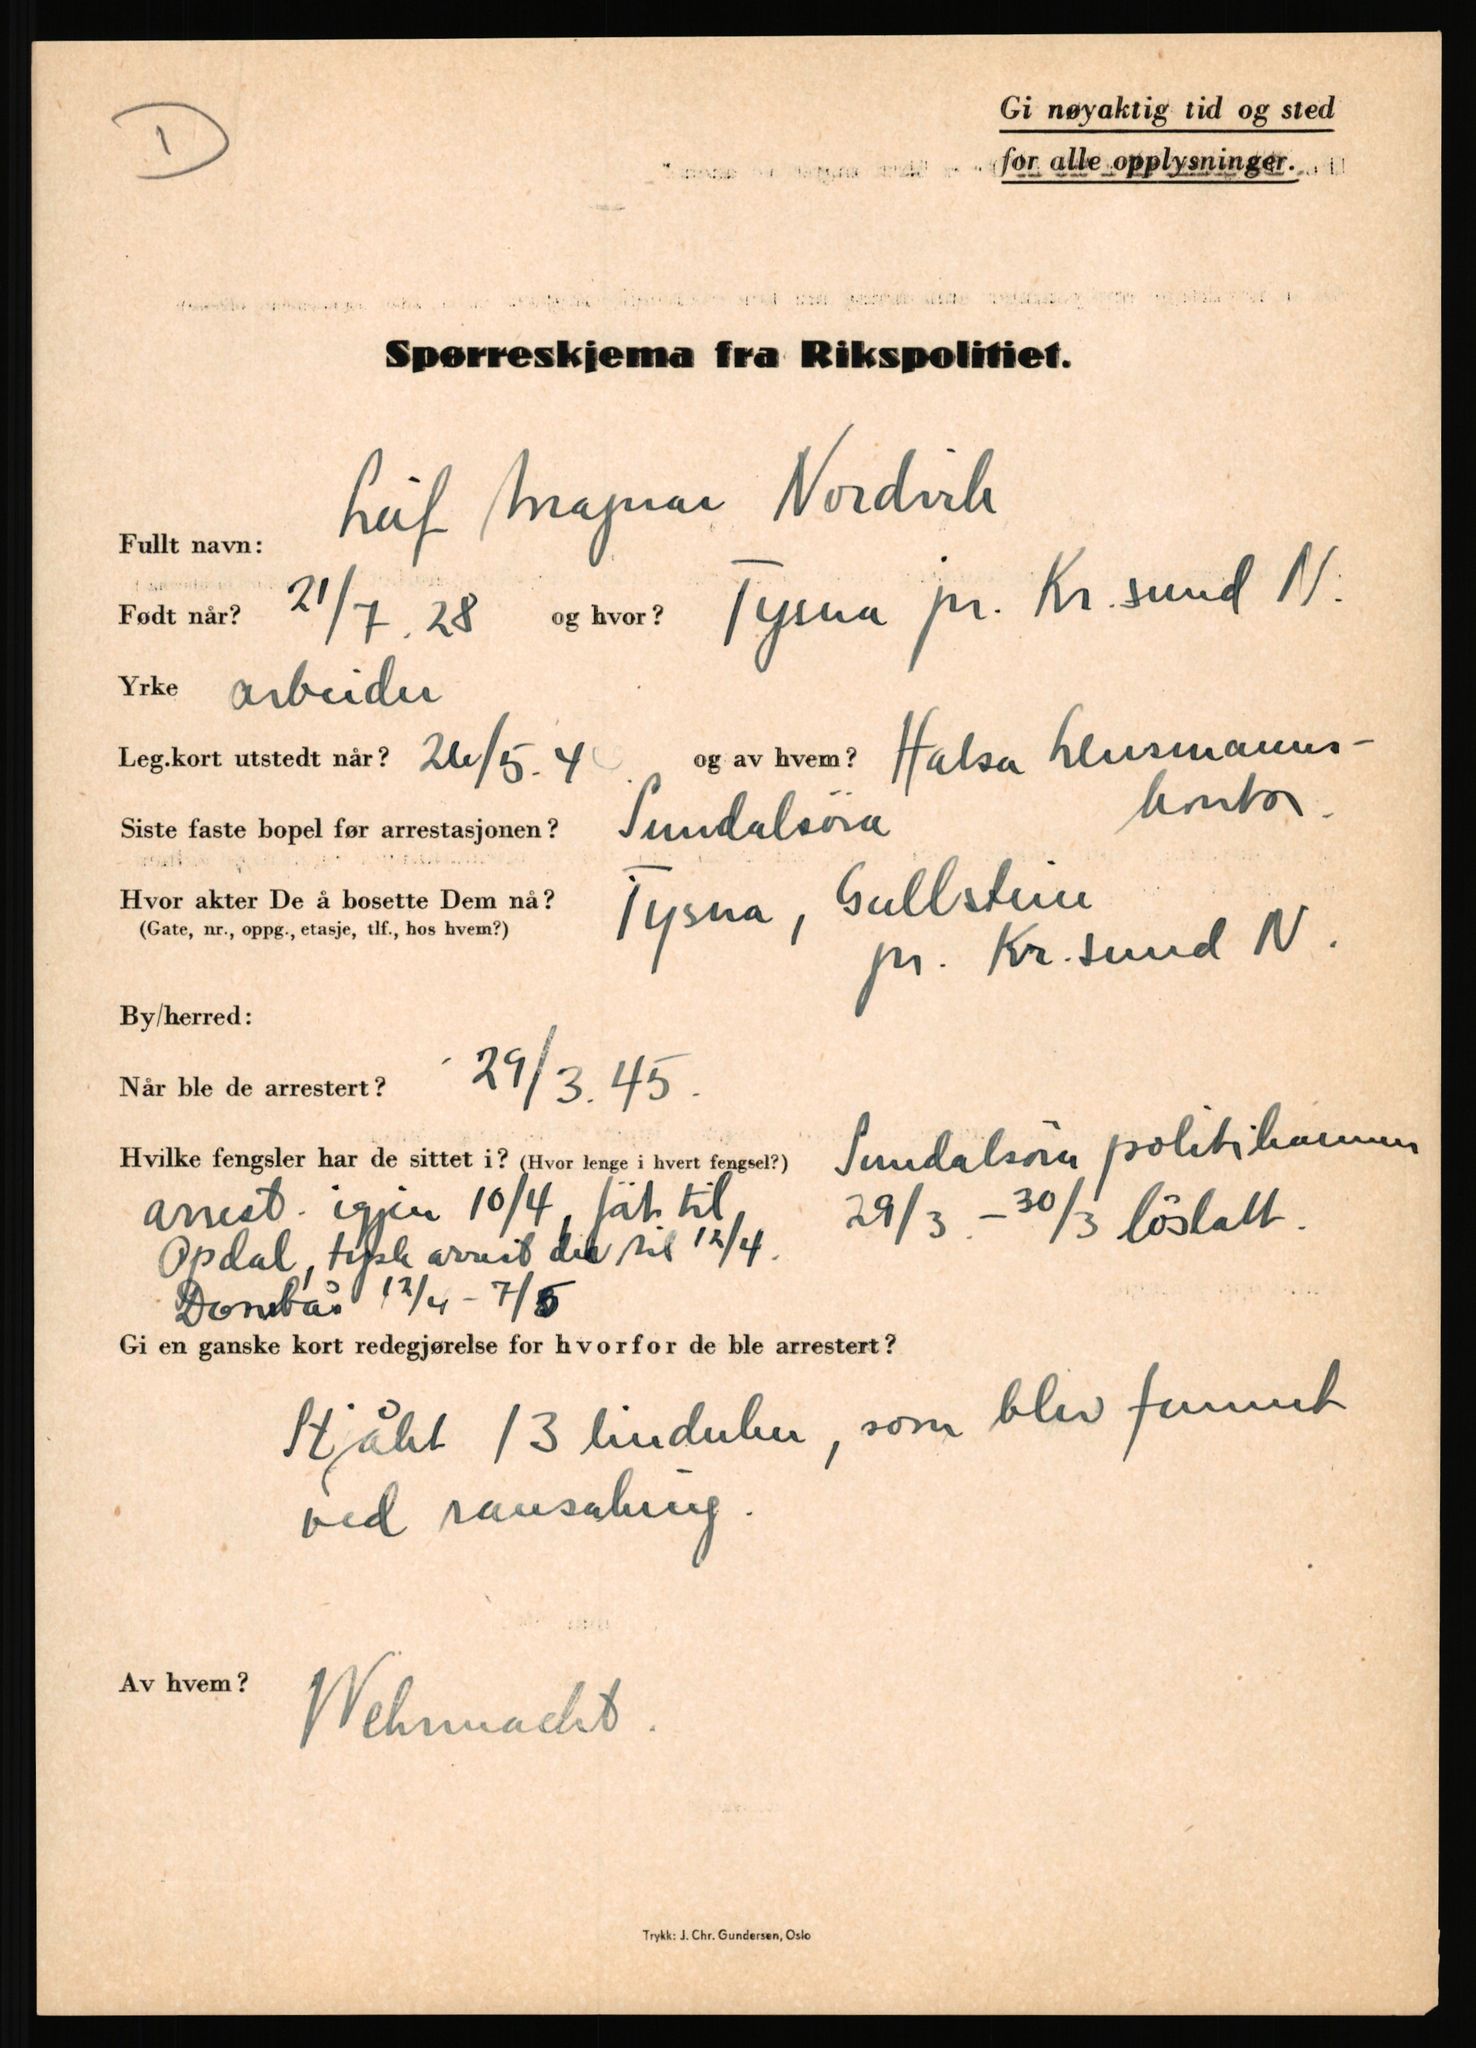 1
Gi nøyaktig tid og sted
for alle opplysninger.
Spørreskjema fra Rikspolitiet.
Fullt navn: Leif Magnar Nordvik
Født når? 21/7.28 og hvor? Tysna pr. Kr.sund N.
Yrke arbeider
Leg.kort utstedt når? og av hvem? Halsa lensmanns-
kontor.
Siste faste bopel før arrestasjonen? Sundalsöra
Hvor akter De å bosette Dem nå? Tysna, Gullstein
(Gate, nr., oppg., etasje, tlf., hos hvem?)
pr. Kr.sund N.
By/herred:
Når ble de arrestert? 29/3.45.
Hvilke fengsler har de sittet i? (Hvor lenge i hvert fengsel?) Sundalsöra politikammer
29/3 - 30/3 löslatt.
arrest. igjen 10/4, til
Opdal, tysk arrest der til 12/4.
Dombås 12/4 - 7/5
Gi en ganske kort redegjørelse for hvorfor de ble arrestert?
Stjålet 13 som blev funnet
ved ransaking.
Av hvem? Wehrmacht.
Trykk: J. Chr. Gundersen, Oslo